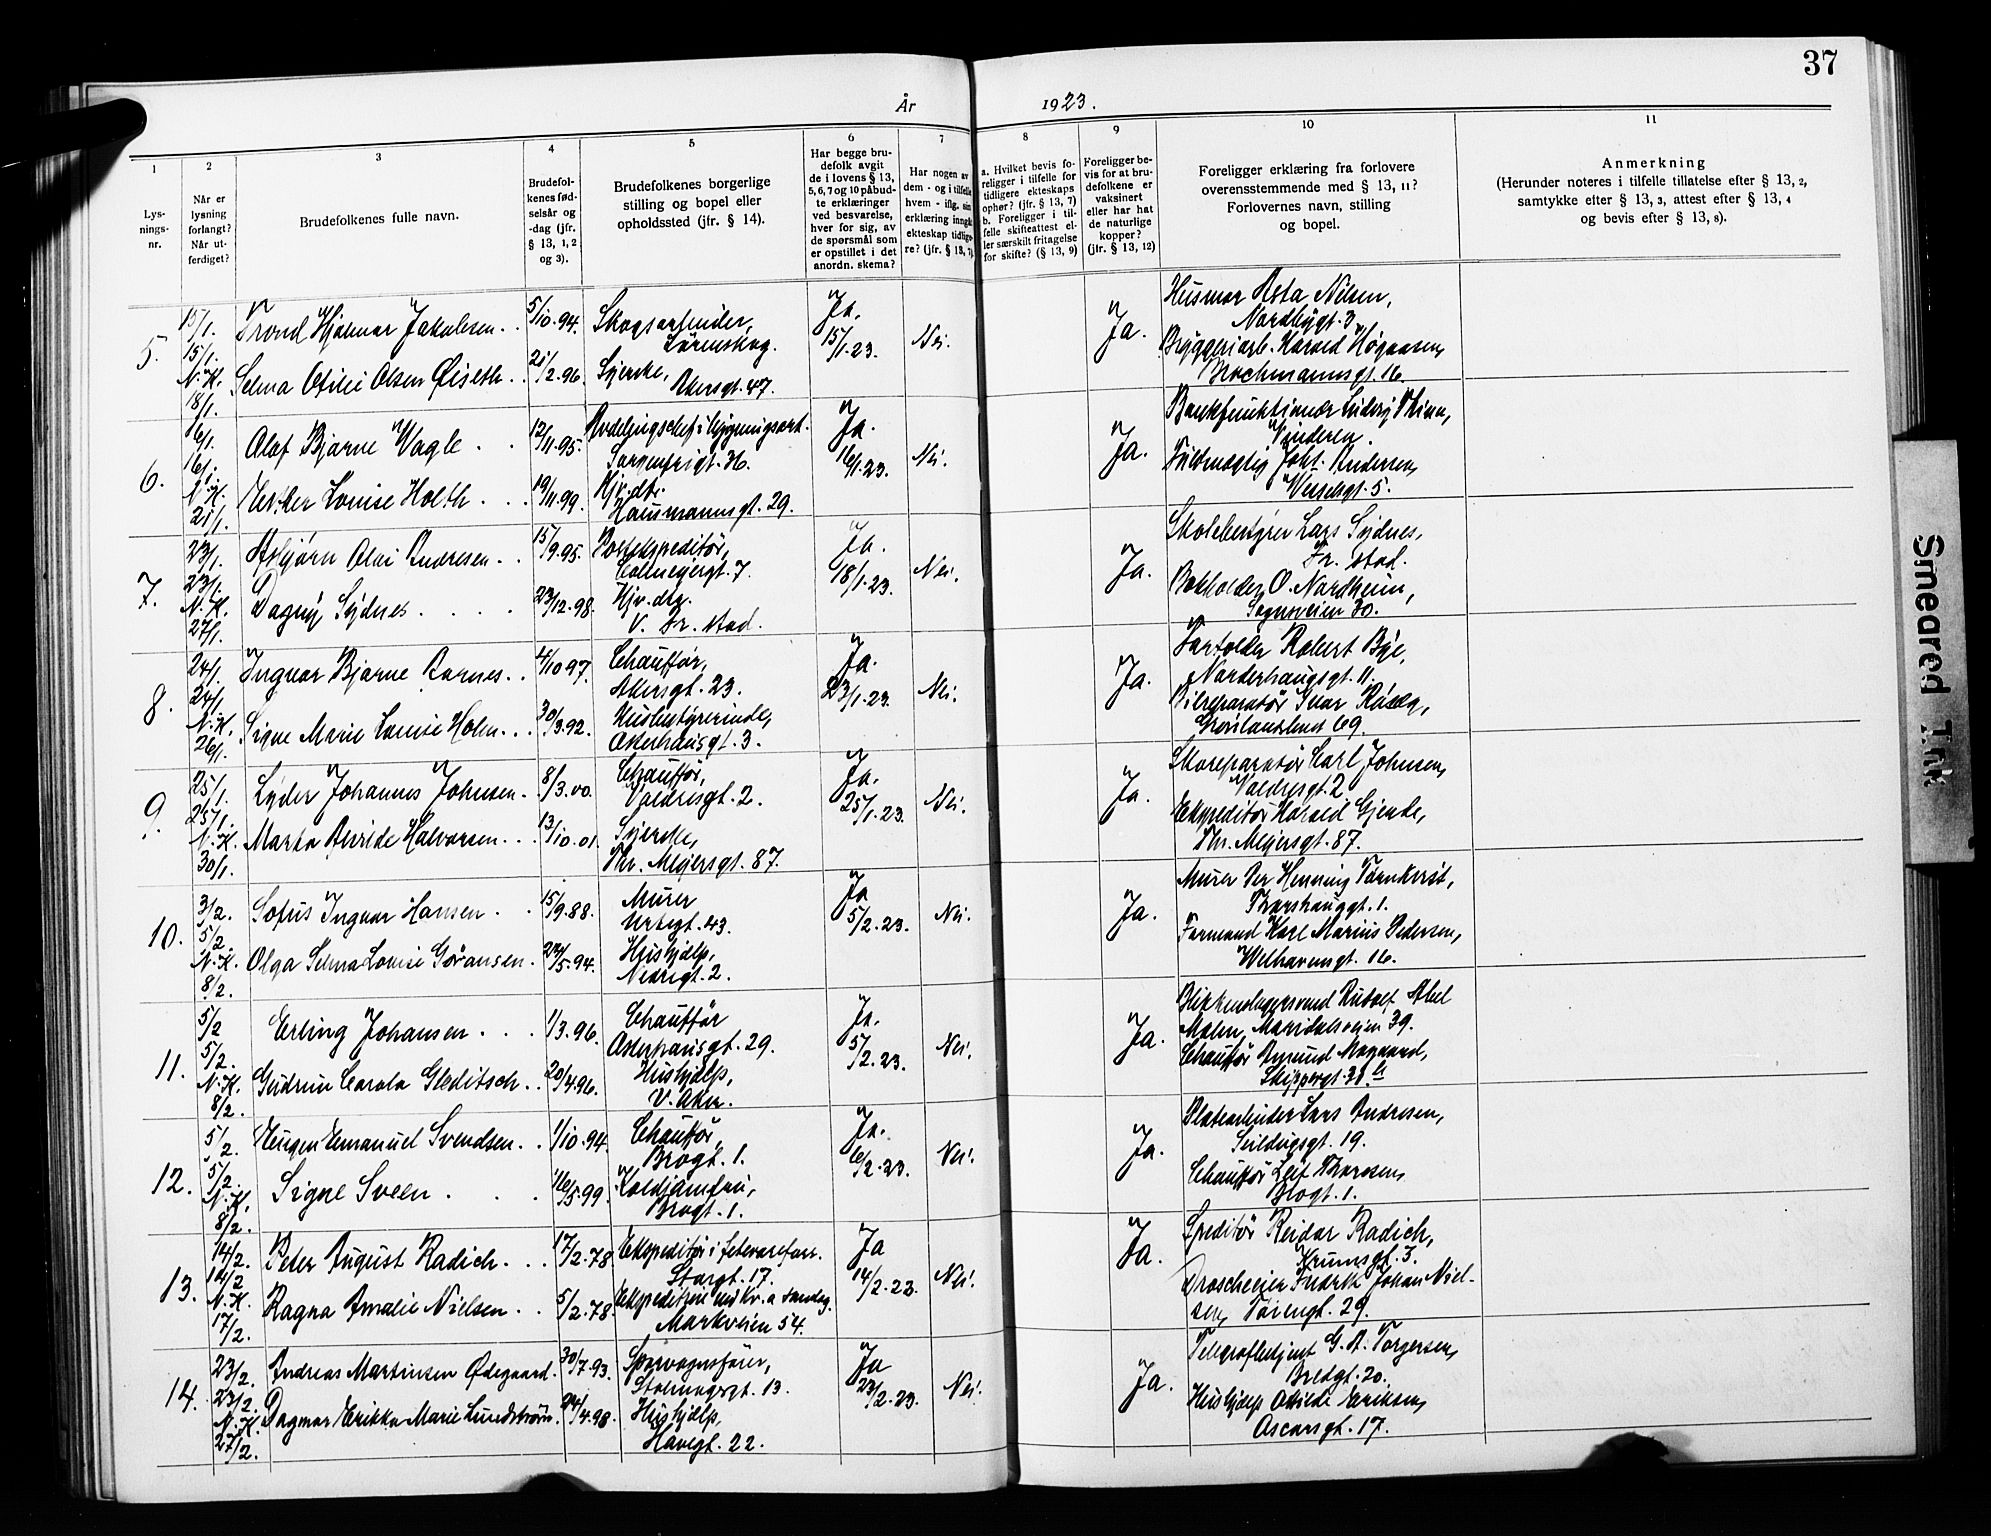 37
År 1923.
1 2 3 4 5 6 7 8 9 10 11
Lys-
nings-
nr.
Når er
lysning
forlangt?
Når ut-
ferdiget?
Brudefolkenes fulle navn.
Brudefol-
kenes fød-
selsår og
-dag (jfr.
§ 13, 1, 2
og 3).
Brudefolkenes borgerlige
stilling og bopel eller
opholdssted (jfr. § 14).
Har begge bru-
defolk avgit
de i lovens § 13,
5, 6, 7 og 10 påbud-
te erklæringer
ved besvarelse,
hver for sig, av
de spørsmål som
er opstillet i det
anordn. skema?
Har nogen av
dem - og i tilfelle
hvem - iflg. sin
erklæring inngått
ekteskap tidlige-
re? (jfr. § 13, 7)
a. Hvilket bevis fo-
religger i tilfelle for
tidligere ekteskaps
ophør? (jfr. § 13, 7)
b. Foreligger i til-
felle skifteattest el-
ler særskilt fritagelse
for skifte? (§ 13, 9)
Foreligger be-
vis for at bru-
defolkene er
vaksinert
eller har hat
de naturlige
kopper?
(jfr. § 13, 12)
Foreligger erklæring fra forlovere
overensstemmende med § 13, 11?
Forlovernes navn, stilling
og bopel.
Anmerkning
(Herunder noteres i tilfelle tillatelse efter § 13, 2,
samtykke efter § 13, 3, attest efter § 13, 4
og bevis efter § 13, 8).
5.
15/1.
15/1.
N.K.
18/1.
Trond Hjalmar Jakobsen . .
Selma Otilie Olsen Øiseth . .
5/10.94.
21/2.96.
Skogsarbeider,
Lørenskog.
Syerske,
Akersgt. 47.
Ja.
15/1.23.
Nei.
Ja.
Husmor Asta Nilsen,
Nordbygt. 3
Bryggeriarb. Harald Høgaasen,
Brochmannsgt. 16.
6.
16/1.
16/1.
N.K.
21/1.
Olaf Bjarne Vagle . .
Esther Louise Holth . . .
12/11.95.
19/11.99.
Avdelingschef i bygningsart.
Sorgenfrigt. 36.
Hjv. dtr.
Hausmannsgt. 29.
Ja.
16/1.23.
Nei.
Ja.
Bankfunktionær Ludvig Thinn,
Vinderen.
Fuldmægtig Joht. Andersen,
Wesselsgt. 5.
7.
23/1.
23/1.
N.K.
27/1.
Asbjørn Olai Andresen . .
Dagny Sydnes . . . .
15/9.95.
23/12.98.
Postekspeditør,
Colletsgt. 7.
Hjv. dtr.
V. Fr. stad.
Ja.
18/1.23.
Nei.
Ja.
Skolebestyrer Lars Sydnes,
Fr. stad.
Bokholder O. Nordheim,
Sognsveien 30.
8.
24/1.
24/1.
N.K.
26/1.
Ingvar Bjarne Barnes. .
Signe Marie Louise Holm . . .
4/10 97.
30/3.92.
Chauffør,
Akersgt. 23.
Husbestyrerinde,
Osterhausgt. 3.
Ja.
23/1.23.
Nei.
Ja.
Fortolder Robert Bye,
Norderhaugsgt. 11.
Bilreparatør Ivar
Grønlandsleret 69.
9.
25/1.
25/1.
N.K.
30/1.
Lyder Johannes Johnsen .
Marta Alvilde Halvorsen . . .
8/3.00.
13/10.01.
Chauffør,
Valdresgt. 2.
Syerske,
Thv. Meyersgt. 87.
Ja.
25/1.23.
Nei.
Ja.
Skoreparatør Carl Johnsen,
Valdresgt. 2
Ekspeditør Harald Gjende,
Thv. Meyersgt. 87.
10.
3/2.
5/2.
N.K.
8/2.
Sofus Ingvar Hansen . .
Olga Selma Lovise Göransen .
15/9.88.
24/5.94.
Murer
Urtegt. 43.
Hushjælp,
Nedregt. 2.
Ja
5/2.23.
Nei.
Ja.
Murer Per Henning Törnkvist,
Thorshauggt. 1.
Formand Karl Marius Pedersen,
Welhavensgt. 16.
11.
5/2
5/2.
N.K.
8/2.
Erling Johansen . . .
Gudrun Carola Gleditsch . .
1/3.96.
20/4.96.
Chauffør
Osterhausgt. 29.
Hushjælp,
V. Aker.
Ja.
5/2.23.
Nei.
Ja.
Blikkenslagersvend Rudolf Abel
Malm, Maridalsveien 39.
Chauffør Amund Mogaard,
Skippergt. 30 b
12.
5/2.
5/2.
N.K.
8/2.
Eugen Emanuel Svendsen . .
Signe Sveen . . .
1/10.94.
16/5.99.
Chauffør,
Brogt. 1.
Koldjomfru,
Brogt. 1.
Ja.
6/2.23.
Nei.
Ja.
Platearbeider Lars Andresen,
Seildugsgt. 19.
Chauffør Leif Thoresen,
Brogt. 1.
13.
14/2.
14/2
N.K.
17/2.
Peter August Radich . . .
Ragna Amalie Nielsen . .
17/2.78
5/2.78
Ekspeditør i fetevareforr.
Storgt. 17.
Markveien 54.
Ja
14/2.23.
Nei.
Ja.
Speditør Reidar Radich,
Krumsgt. 3.
Droscheeier Fredrik Johan Niel-
sen, Tøiengt. 29.
14.
23/2.
23/2.
N.K.
27/2.
Andreas Martinsen Ødegaard.
Dagmar Erikka Marie Lundstrøm.
30/7.93.
24/4.98.
Sporvognsfører,
Stolmagergt. 13.
Hushjælp,
Havegt. 22.
Ja
23/2.23.
Nei.
Ja.
Telegrafbetjent G. A. Torgersen,
Bredgt. 20.
Hushjælp Otilde Eriksen,
Oscarsgt. 17.
Smeared Ink